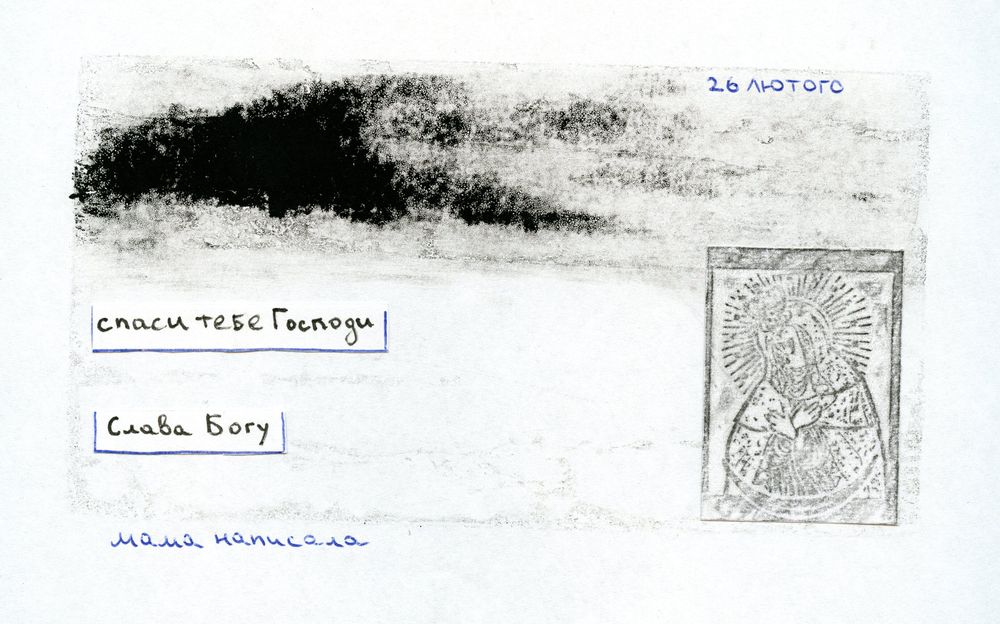 26 лютого
спаси тебе Господи
Слава Богу
мама написала